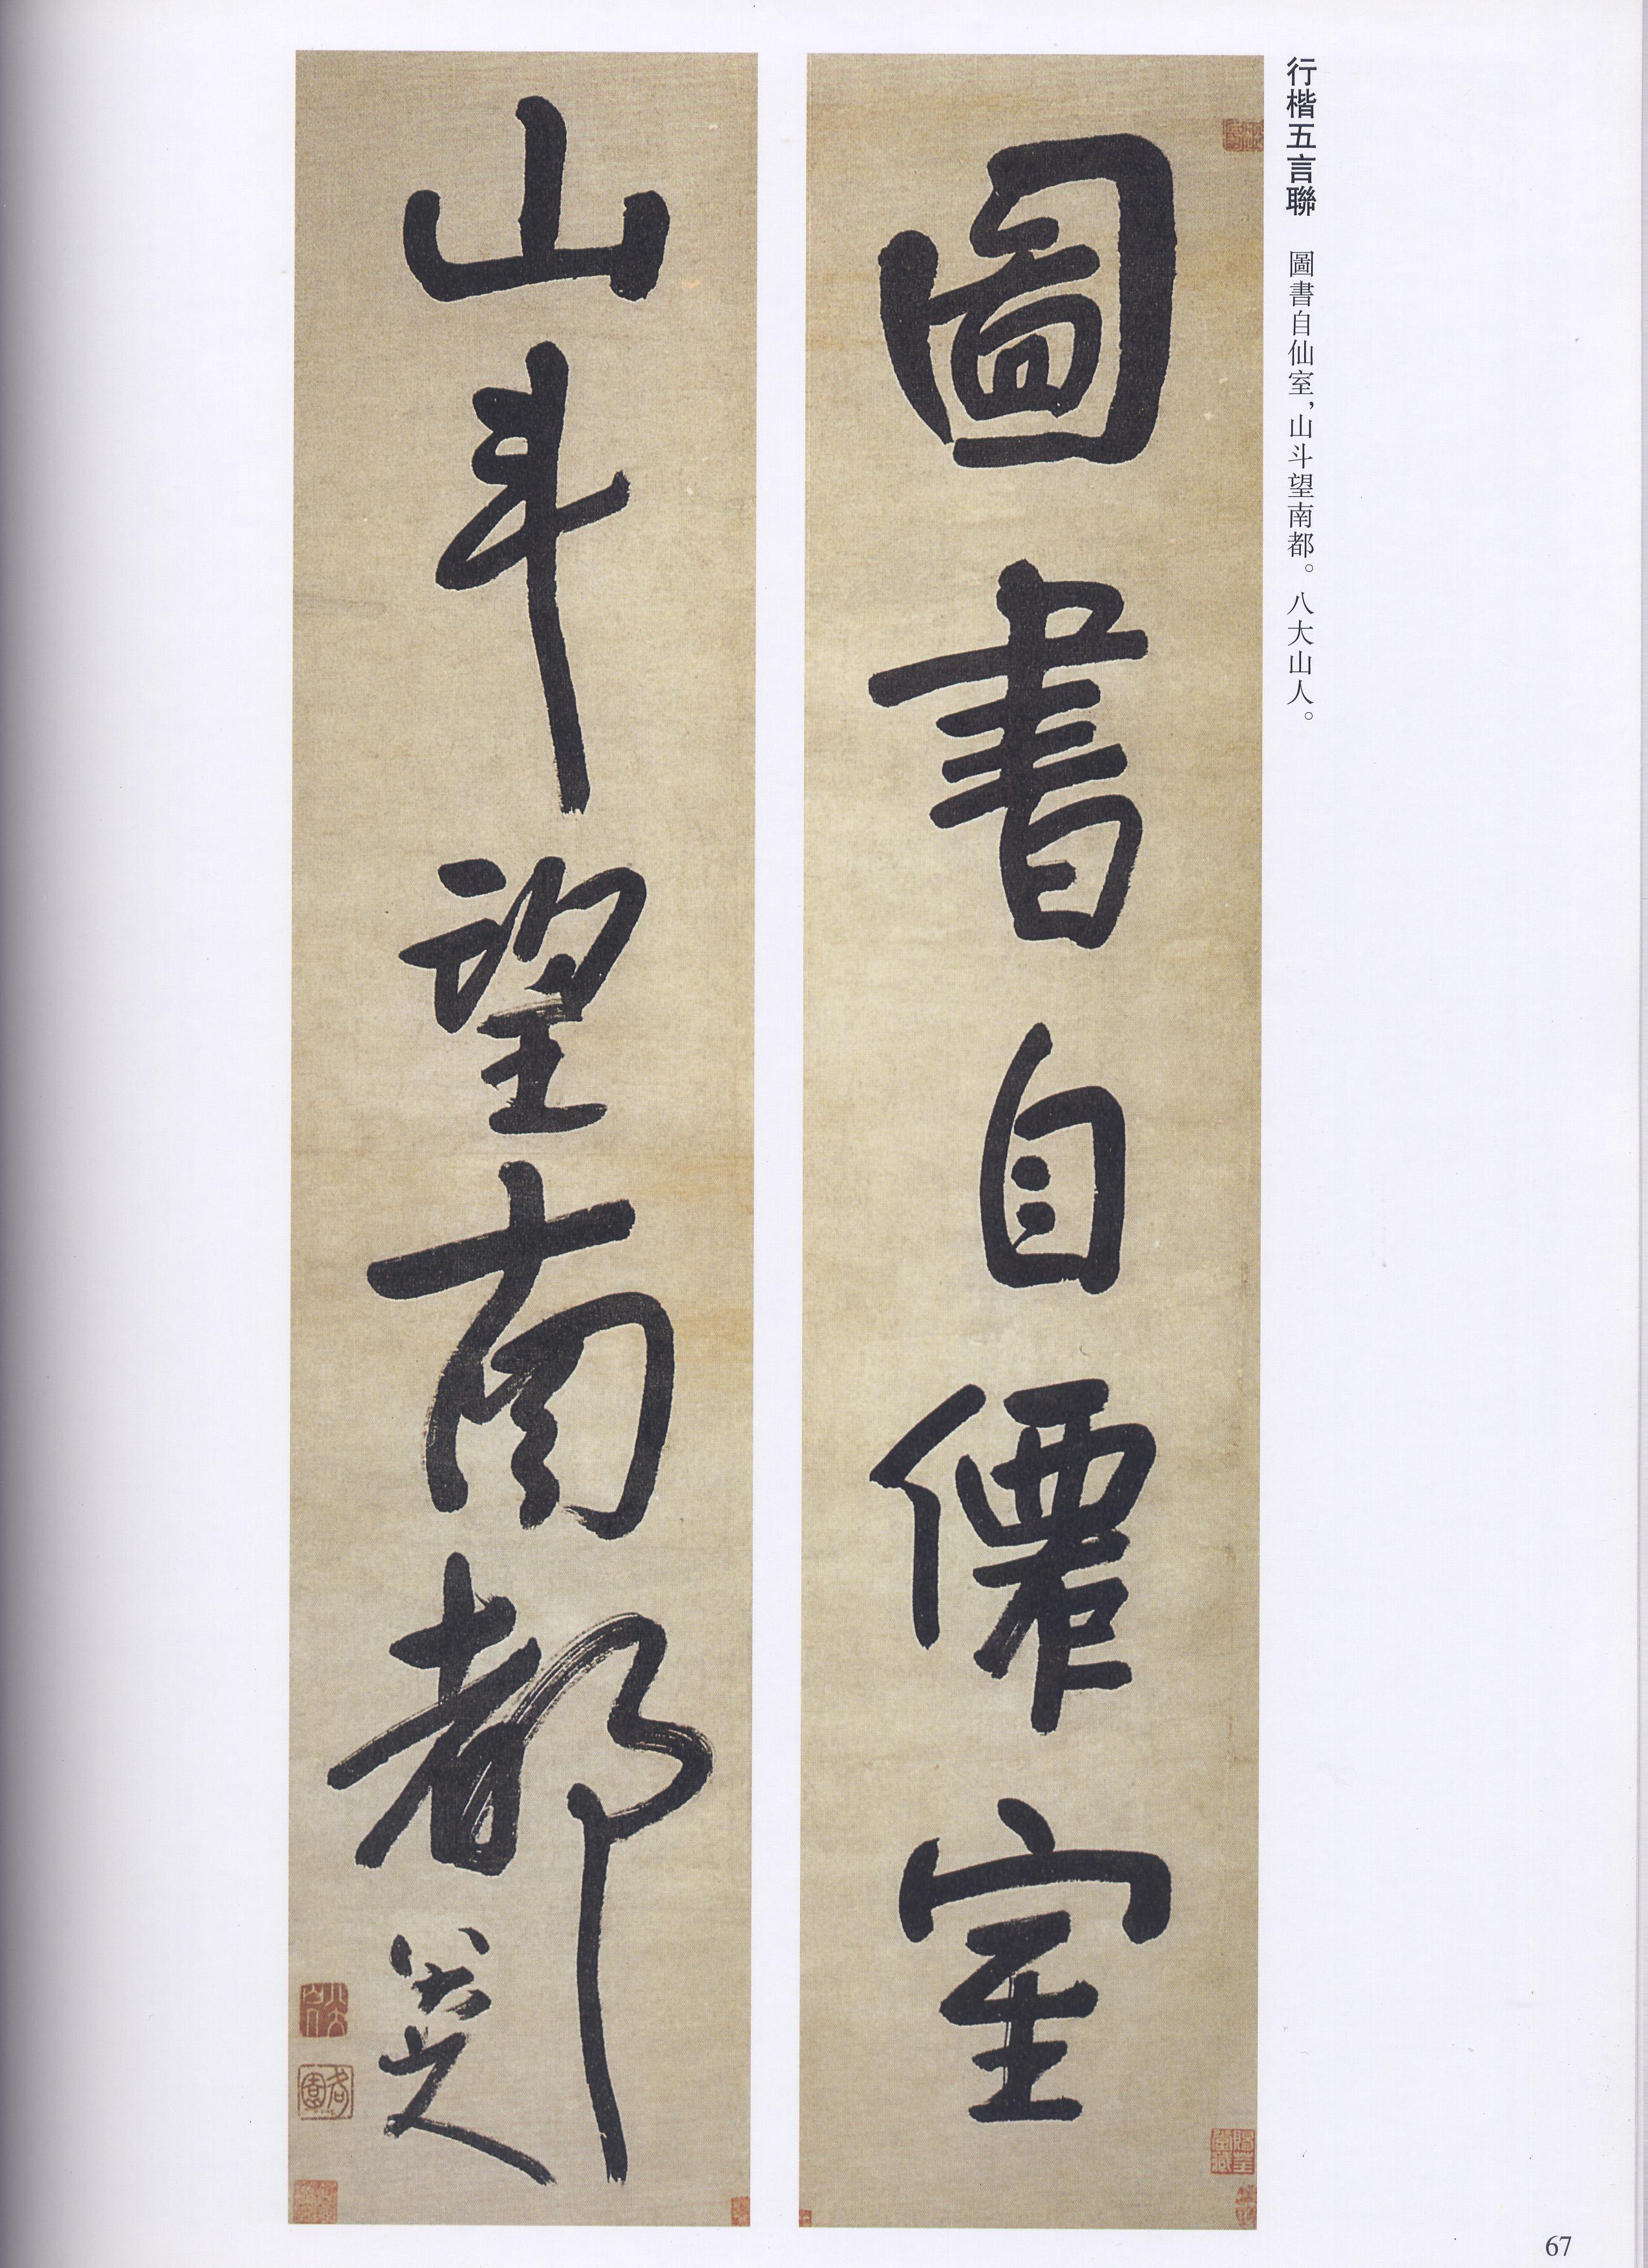 行楷五言聯　圖書自仙室，山斗望南都。八大山人。
圖書自僊室
山斗望南都
八大山人
八大山人
67